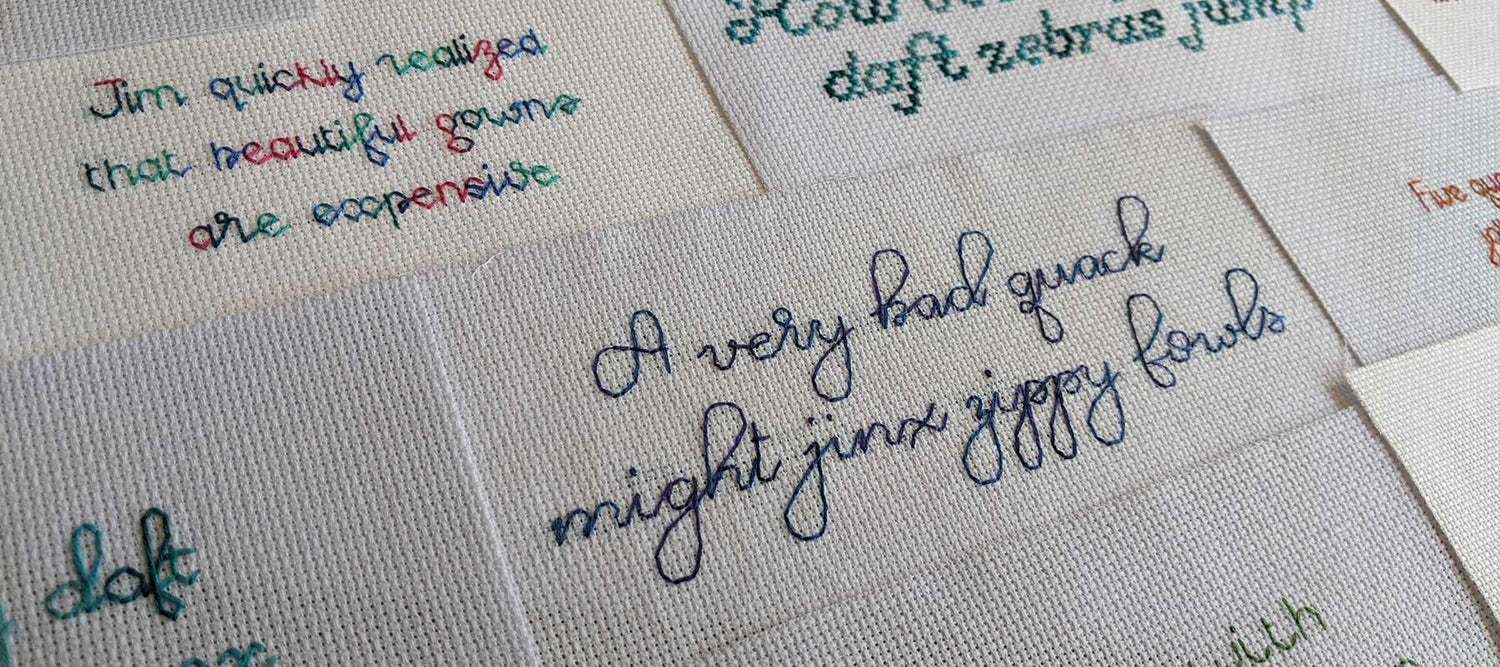 Jim quickly realized
that beautiful gowns
are expensive
How
daft zebras jump
Five
A very bad quack
might jinx zippy fowls
daft
with